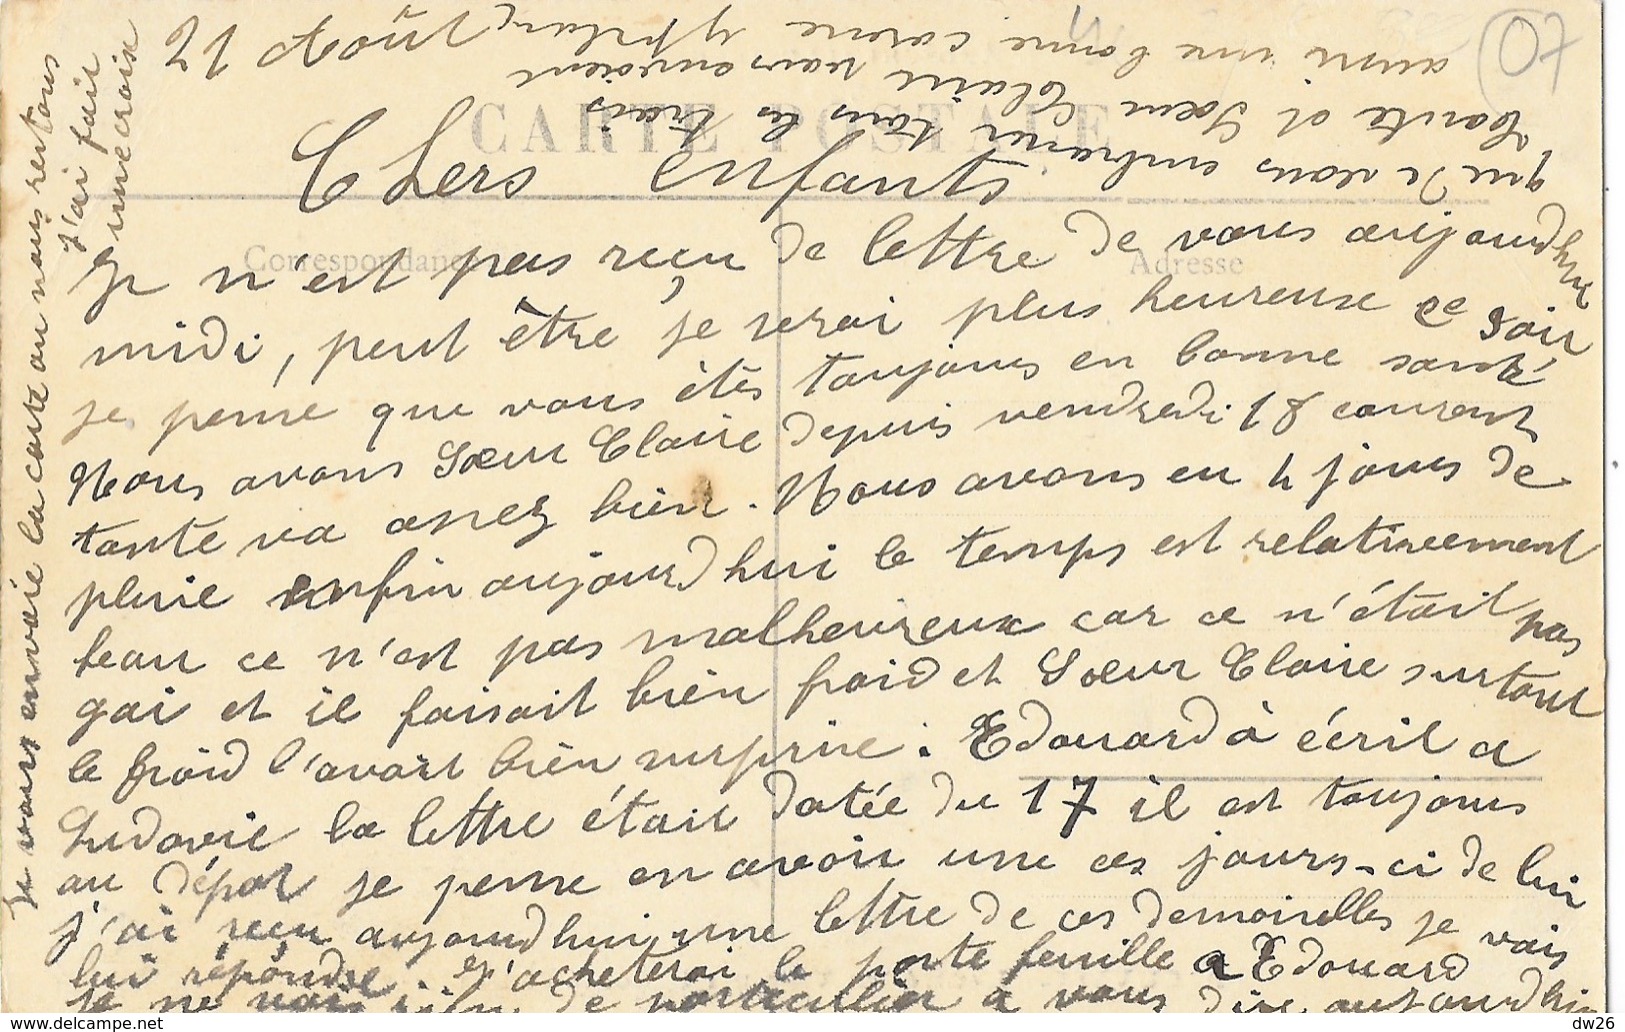 21 Août
CARTE POSTALE
Chers enfants
Correspondance
Adresse
Je n'est pas reçu de lettre de vous aujourd'hui
midi, peut être je serai plus heureuse ce soir
je pense que vous étés toujours en bonne santé
Nous avons Sœur Claire depuis vendredi 18 courant
tante va assez bien. Nous avons eu 4 jours de
pluie enfin aujourd'hui le temps est relativement
beau ce n'est pas malheureux car ce n'était pas
gai et il faisait bien froid et Sœur Claire surtout
le froid l'avait bien surprise. Edouard à écrit a
Ludovic la lettre était datée du 17 il est toujours
au dépot je pense en avoir une ces jours-ci de lui
j'ai reçu aujourd'hui une lettre de ces demoiselles je vais
lui répondre. et j'acheterai le porte feuille a Edouard
Je ne vois rien de particulier a vous dire aujourd'hui
que de vous embrasser tous les trois
Tante et Sœur Claire vous envoient
aussi une bonne caresse
Je vous envoie la carte ou nous restons
j'ai fait
une croix
07
dw26